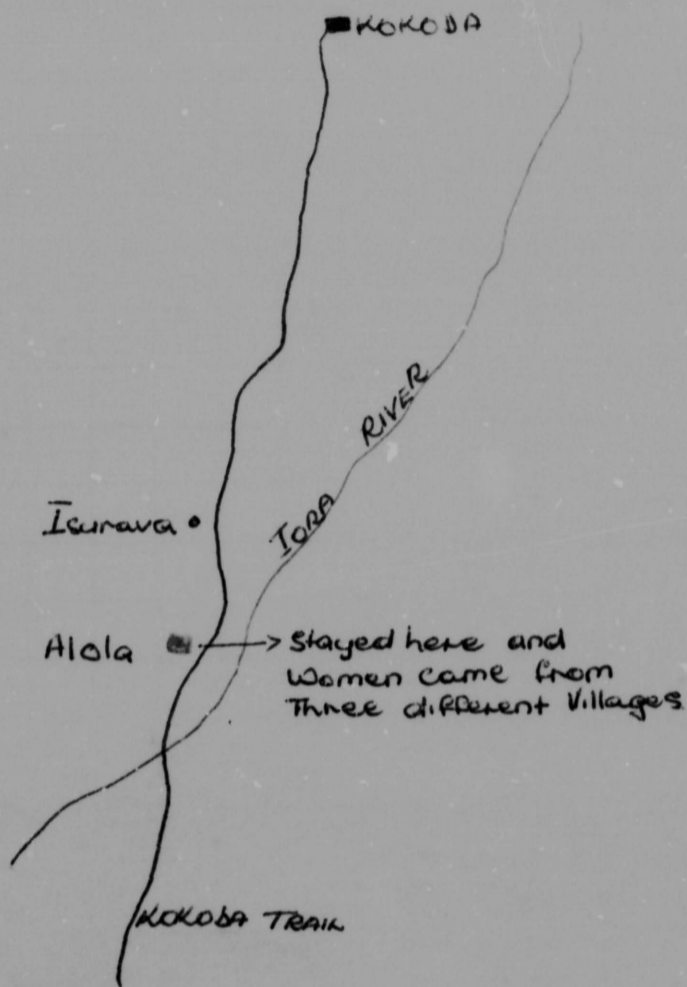 KOKODA
IORA RIVER
Isurava
Alola
Stayed here and
Women came from
Three different Villages
KOKODA TRAIL